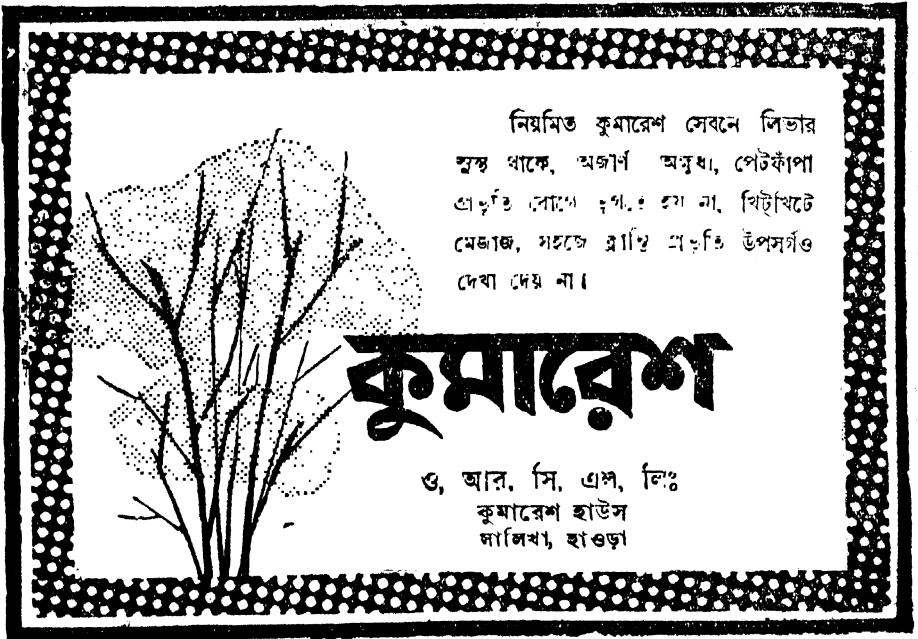 নিয়মিত কুমারেশ সেবনে লিভার
সুস্থ থাকে, অজীর্ণ অক্ষুধা, পেটফাঁপা
প্রভৃতি রোগে ভুগতে হয় না, খিট্‌খিটে
মেজাজ, সহজে ক্লান্তি প্রভৃতি উপসর্গও
দেখা দেয় না।
কুমারেশ
ও, আর, সি, এল, লিঃ
কুমারেশ হাউস
সালিখা, হাওড়া